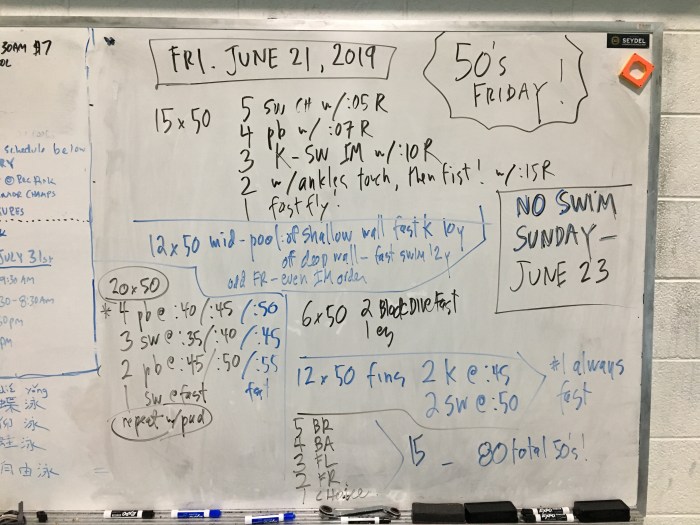 30AM #7
OL
schedule below
RY
MAJOR CHAMPS
JULY 31st
9:30AM
30-8:30AM
30pm
pm
yǒng
蝶泳
仰泳
蛙泳
自由泳
FRI. JUNE 21, 2019
50's
FRIDAY!
SEYDEL
15 x 50
5 sw CH w/:05 R
4 pb w/ :07 R
3 K-SW IM w/:10 R
2 w/ankles touch, then fist! w/:15R
1 fast fly!
NO SWIM
SUNDAY —
JUNE 23
12x50 mid-pool: off shallow wall fast k 10y
off deep wall - fast swim 12y
odd FR - even IM order
20x50
* 4 pb @ :40 /:45 /:50
3 sw @ :35/:40 /:45
2 pb @ :45/:50 /:55
1 sw @ fast
fast
repeat w/ pad
6x50 2 Block Dive Fast
1 ez
12 x 50 fins 2 K @ :45
2 sw @ :50
#1 always
fast
5 BR
4 BA
3 FL
2 FR
1 CHoice
15 — 80 total 50's!
EXPO